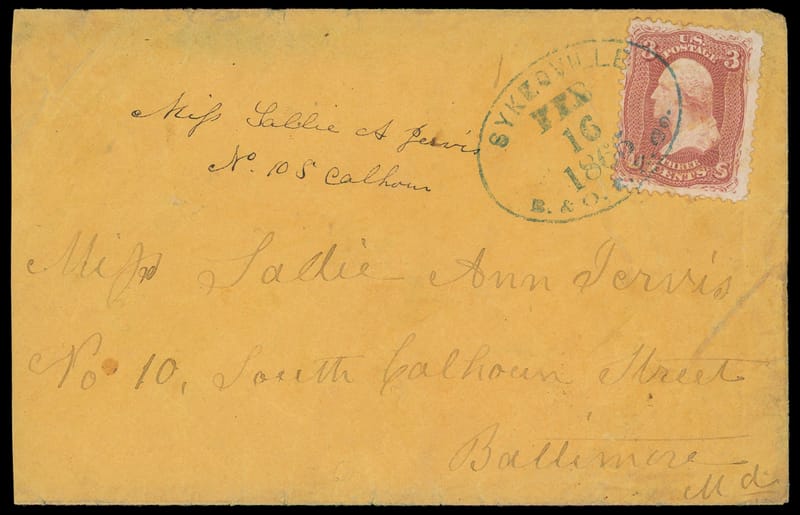 SYKESVILLE
FEB
16
186
B. & O. R. R. Co.
3 U.S. 3
POSTAGE
THREE
CENTS
Miss Sallie A Jervis
No. 10 S Calhoun
Miss Sallie Ann Jervis
No 10, South Calhoun Street
Baltimore
Md